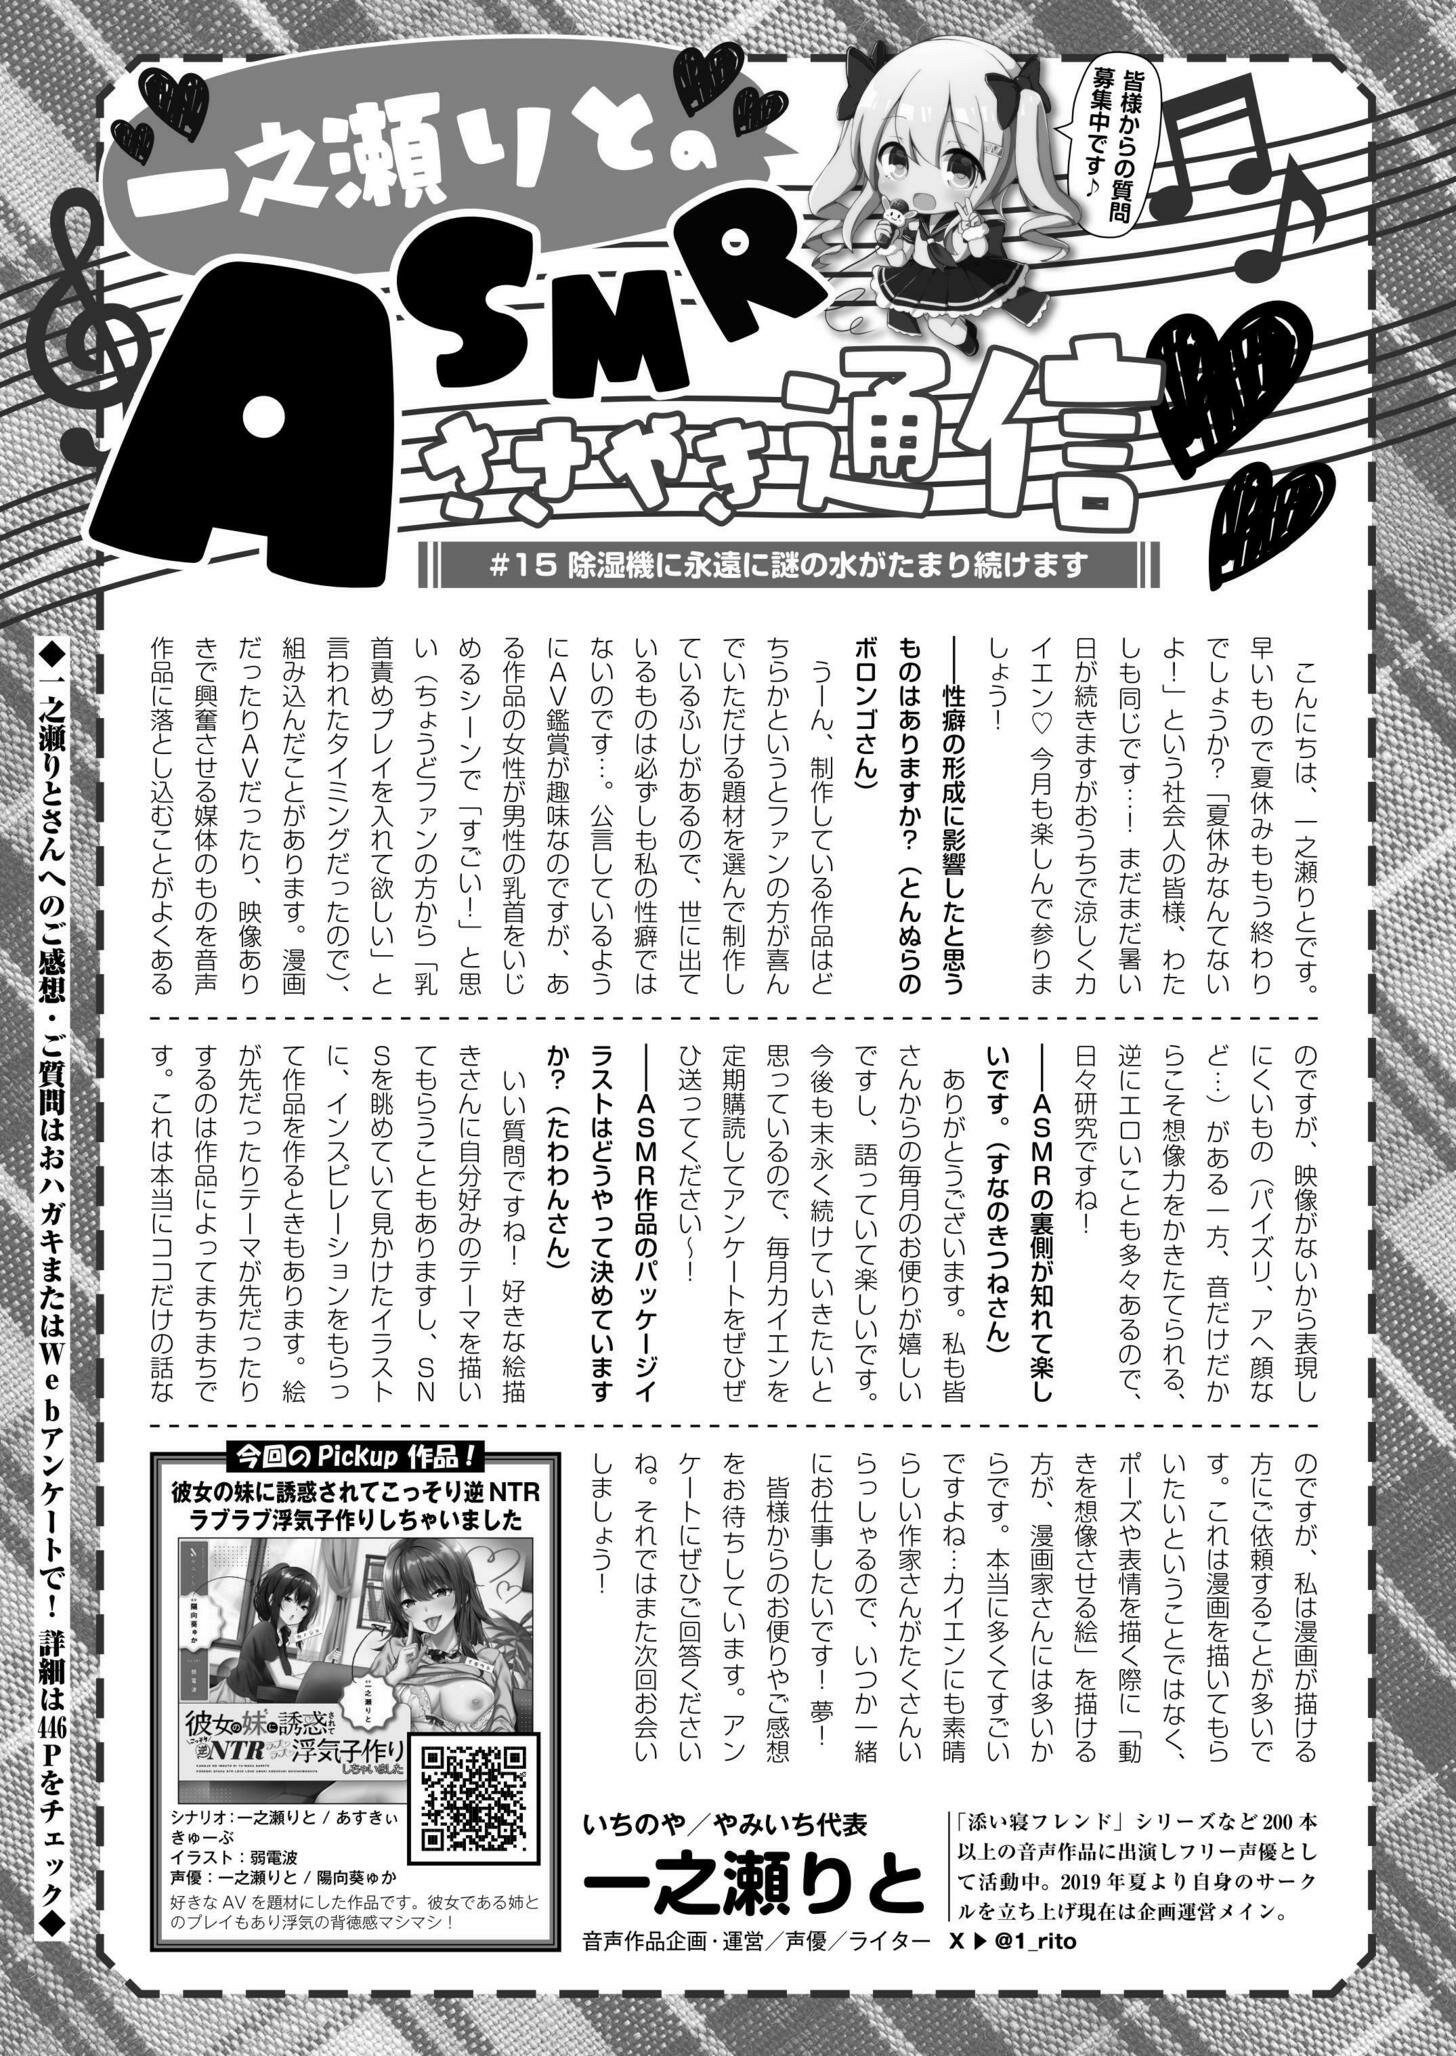 一之瀬りとの
ASMR
ささやき通信
皆様からの質問
募集中です♪
#15 除湿機に永遠に謎の水がたまり続けます
こんにちは、一之瀬りとです。
早いもので夏休みももう終わり
でしょうか？「夏休みなんてない
よ！」という社会人の皆様、わた
しも同じです…！まだまだ暑い
日が続きますがおうちで涼しくカ
イエン♡ 今月も楽しんで参りま
しょう！
――性癖の形成に影響したと思う
ものはありますか？（とんぬらの
ボロンゴさん）
うーん、制作している作品はど
ちらかというとファンの方が喜ん
でいただける題材を選んで制作し
ているふしがあるので、世に出て
いるものは必ずしも私の性癖では
ないのです…。公言しているよう
にAV鑑賞が趣味なのですが、あ
る作品の女性が男性の乳首をいじ
めるシーンで「すごい！」と思
い（ちょうどファンの方から「乳
首責めプレイを入れて欲しい」と
言われたタイミングだったので）、
組み込んだことがあります。漫画
だったりAVだったり、映像あり
きで興奮させる媒体のものを音声
作品に落とし込むことがよくある
のですが、映像がないから表現し
にくいもの（パイズリ、アヘ顔な
ど…）がある一方、音だけだか
らこそ想像力をかきたてられる、
逆にエロいことも多々あるので、
日々研究ですね！
――ASMRの裏側が知れて楽し
いです。（すなのきつねさん）
ありがとうございます。私も皆
さんからの毎月のお便りが嬉しい
ですし、語っていて楽しいです。
今後も末永く続けていきたいと
思っているので、毎月カイエンを
定期購読してアンケートをぜひぜ
ひ送ってください～！
――ASMR作品のパッケージイ
ラストはどうやって決めています
か？（たわわんさん）
いい質問ですね！好きな絵描
きさんに自分好みのテーマを描い
てもらうこともありますし、SN
Sを眺めていて見かけたイラスト
に、インスピレーションをもらっ
て作品を作るときもあります。絵
が先だったりテーマが先だったり
するのは作品によってまちまちで
す。これは本当にココだけの話な
のですが、私は漫画が描ける
方にご依頼することが多いで
す。これは漫画を描いてもら
いたいということではなく、
ポーズや表情を描く際に「動
きを想像させる絵」を描ける
方が、漫画家さんには多いか
らです。本当に多くてすごい
ですよね…カイエンにも素晴
らしい作家さんがたくさんい
らっしゃるので、いつか一緒
にお仕事したいです！夢！
皆様からのお便りやご感想
をお待ちしています。アン
ケートにぜひご回答ください
ね。それではまた次回お会い
しましょう！
今回のPickup 作品！
彼女の妹に誘惑されてこっそり逆NTR
ラブラブ浮気子作りしちゃいました
陽向葵ゅか
一之瀬りと
彼女の妹に誘惑されて
こっそり逆NTRラブラブ浮気子作り
しちゃいました
シナリオ：一之瀬りと / あすきぃ
きゅーぶ
イラスト：弱電波
声優：一之瀬りと / 陽向葵ゅか
好きなAVを題材にした作品です。彼女である姉と
のプレイもあり浮気の背徳感マシマシ！
いちのや／やみいち代表
一之瀬りと
音声作品企画・運営／声優／ライター
「添い寝フレンド」シリーズなど200本
以上の音声作品に出演しフリー声優とし
て活動中。2019年夏より自身のサーク
ルを立ち上げ現在は企画運営メイン。
X▶@1_rito
◆一之瀬りとさんへのご感想・ご質問はおハガキまたはWebアンケートで！ 詳細は446Pをチェック◆